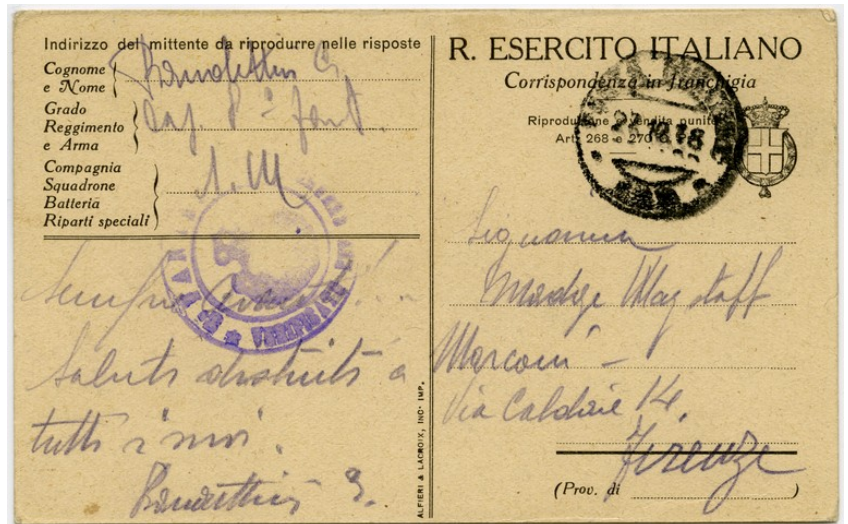 Indirizzo del mittente da riprodurre nelle risposte
Cognome
e Nome
Grado
Reggimento
e Arma
Compagnia
Squadrone
Batteria
Riparti speciali
Cap. 8º fant.
S. M
Saluti distinti a
tutti i suoi.
ALFIERI & LACROIX, IND. IMP.
R. ESERCITO ITALIANO
Corrispondenza in franchigia
Riproduzione e vendita punite
Art. 268 e 270
18
Signorina
Madge
Marconi -
Via 14.
Firenze
(Prov. di )